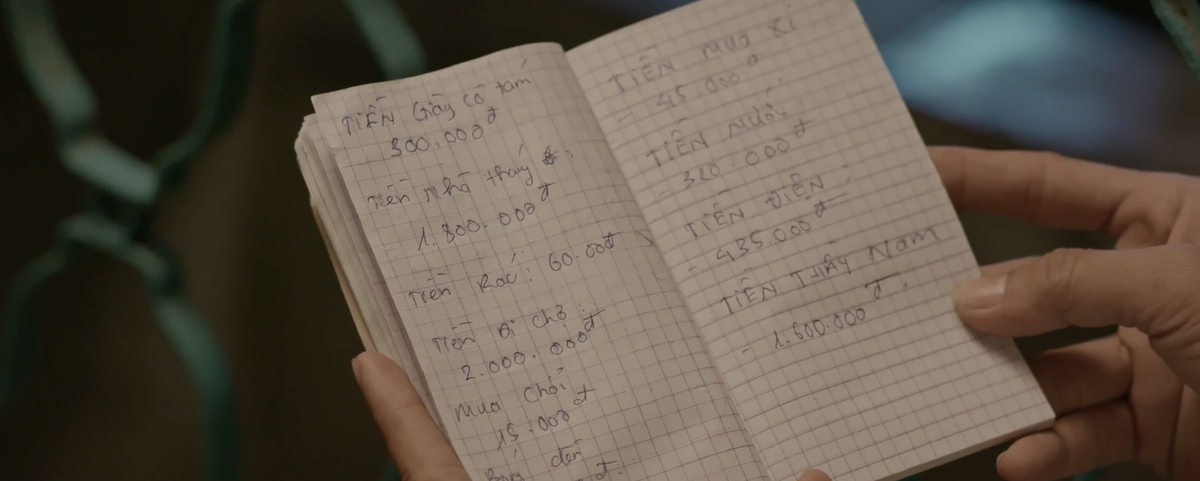 TIỀN Giày cô tám
300.000đ
Tiền nhà tháy
1.800.000đ
Tiền Rác: 60.00đ
Tiền đi chợ:
2.000.000đ
Mua chổi
15.000đ
đèn
đ.
TIỀN MUA
- 45.000đ
TIỀN NƯỚC
- 320.000đ
TIỀN ĐIỆN
- 435.000đ
TIỀN THẦY NAM
- 1.600.000đ.